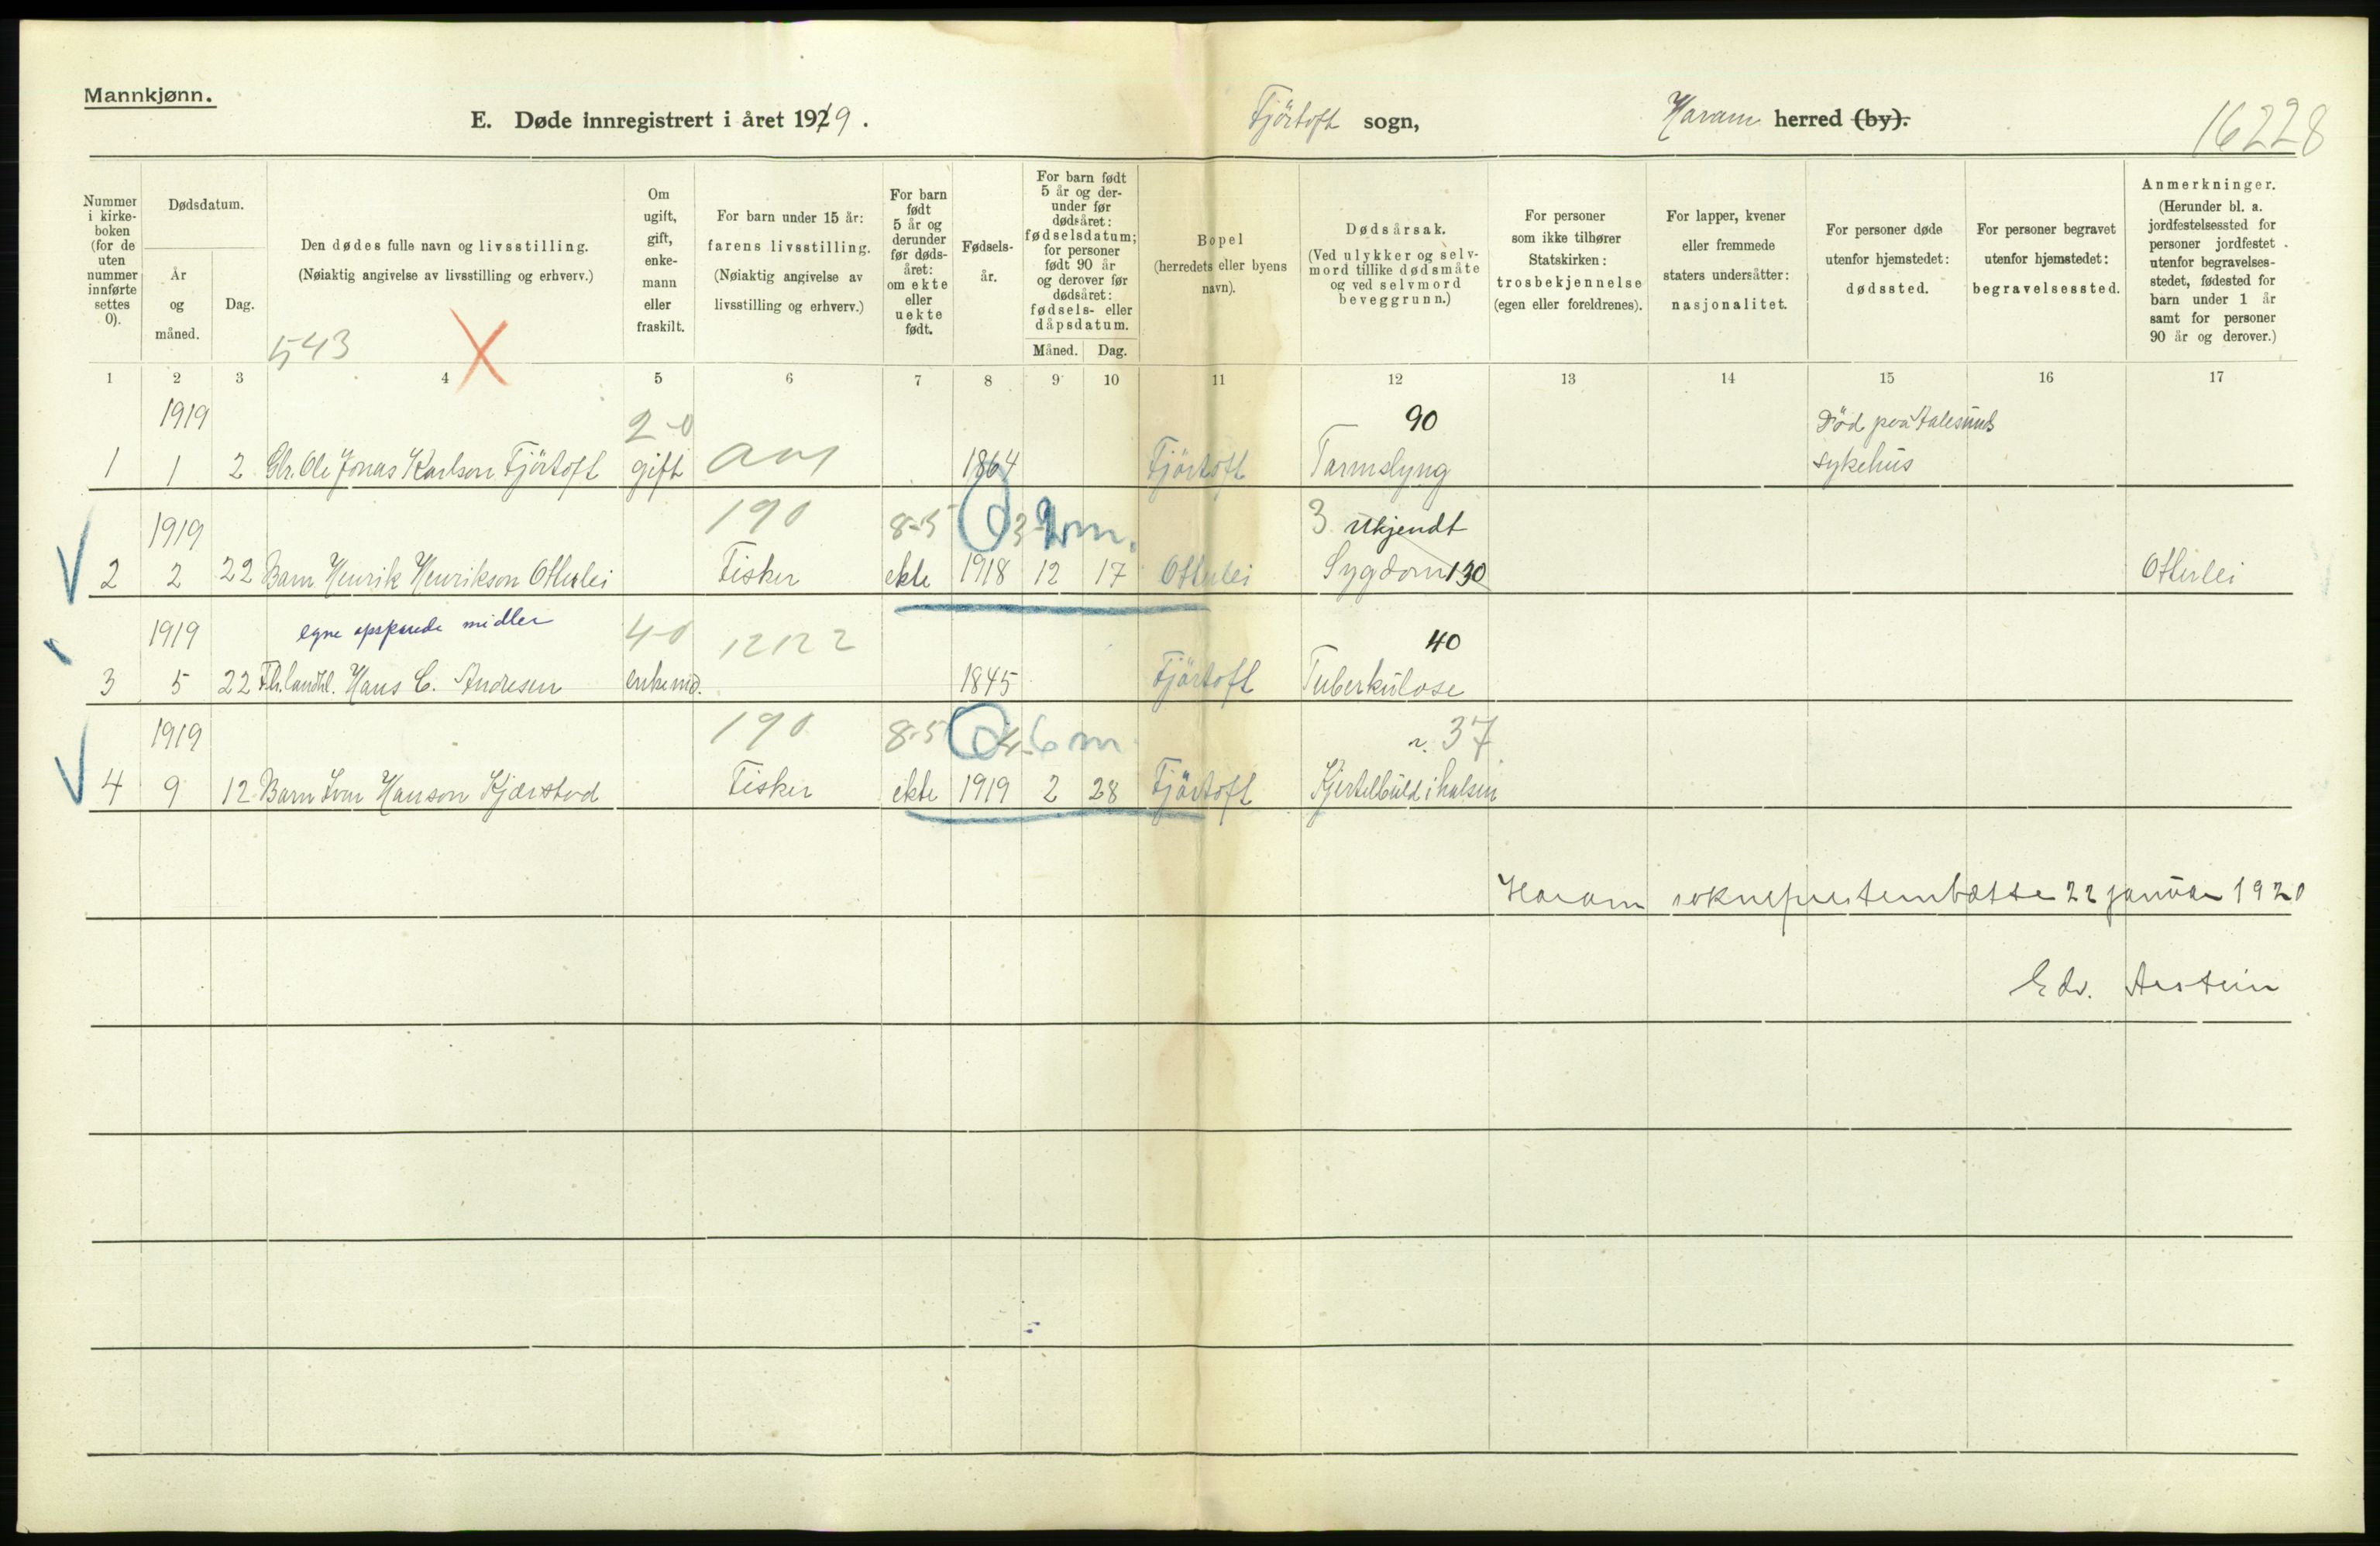 Mannkjønn.
E. Døde innregistrert i året 1919.
Fjörtoft sogn,
Haram herred (by).
16228
Nummer i kirkeboken (for de uten nummer innførte settes 0).
Dødsdatum.
År og måned.
Dag.
Den dødes fulle navn og livsstilling.
(Nøiaktig angivelse av livsstilling og erhverv.)
543 X
Om ugift, gift, enkemann eller fraskilt.
For barn under 15 år: farens livsstilling.
(Nøiaktig angivelse av livsstilling og erhverv.)
For barn født 5 år og derunder før dødsåret: om ekte eller uekte født.
Fødselsår.
For barn født 5 år og derunder før dødsåret: fødselsdatum; for personer født 90 år og derover før dødsåret: fødsels- eller dåpsdatum.
Måned. Dag.
Bopel (herredets eller byens navn).
Dødsårsak.
(Ved ulykker og selvmord tillike dødsmåte og ved selvmord beveggrunn.)
For personer som ikke tilhører Statskirken: trosbekjennelse (egen eller foreldrenes).
For lapper, kvener eller fremmede staters undersåtter: nasjonalitet.
For personer døde utenfor hjemstedet: dødssted.
For personer begravet utenfor hjemstedet: begravelsessted.
Anmerkninger.
(Herunder bl. a. jordfestelsessted for personer jordfestet utenfor begravelsesstedet, fødested for barn under 1 år samt for personer 90 år og derover.)
1 2 3 4 5 6 7 8 9 10 11 12 13 14 15 16 17
1919 2-0 90 Död paa Aalesunds
1 1 2 Gbr. Ole Jonas Karlson Fjörtoft gift 1864 Fjörtoft Tarmslyng sykehus
1919 190 8-5 2m. 3 Ukjendt
2 2 22 Barn Henrik Henrikson Otterlei Fisker ekte 1918 12 17 Otterlei Sygdom 130 Otterlei
1919 egne opsparede midler 4-0 40
3 5 22 Fh. landhl. Hans C. Andresen enkemd. 1845 Fjörtoft Tuberkulose
1919 190 8-5 6 m 37
4 9 12 Barn Ivar Hanson Kjærstad Fisker ekte 1919 2 28 Fjörtoft Kjertelbuld i halsen
Haram sokneprestembætte 22 januar 1920
Edv. Aestein